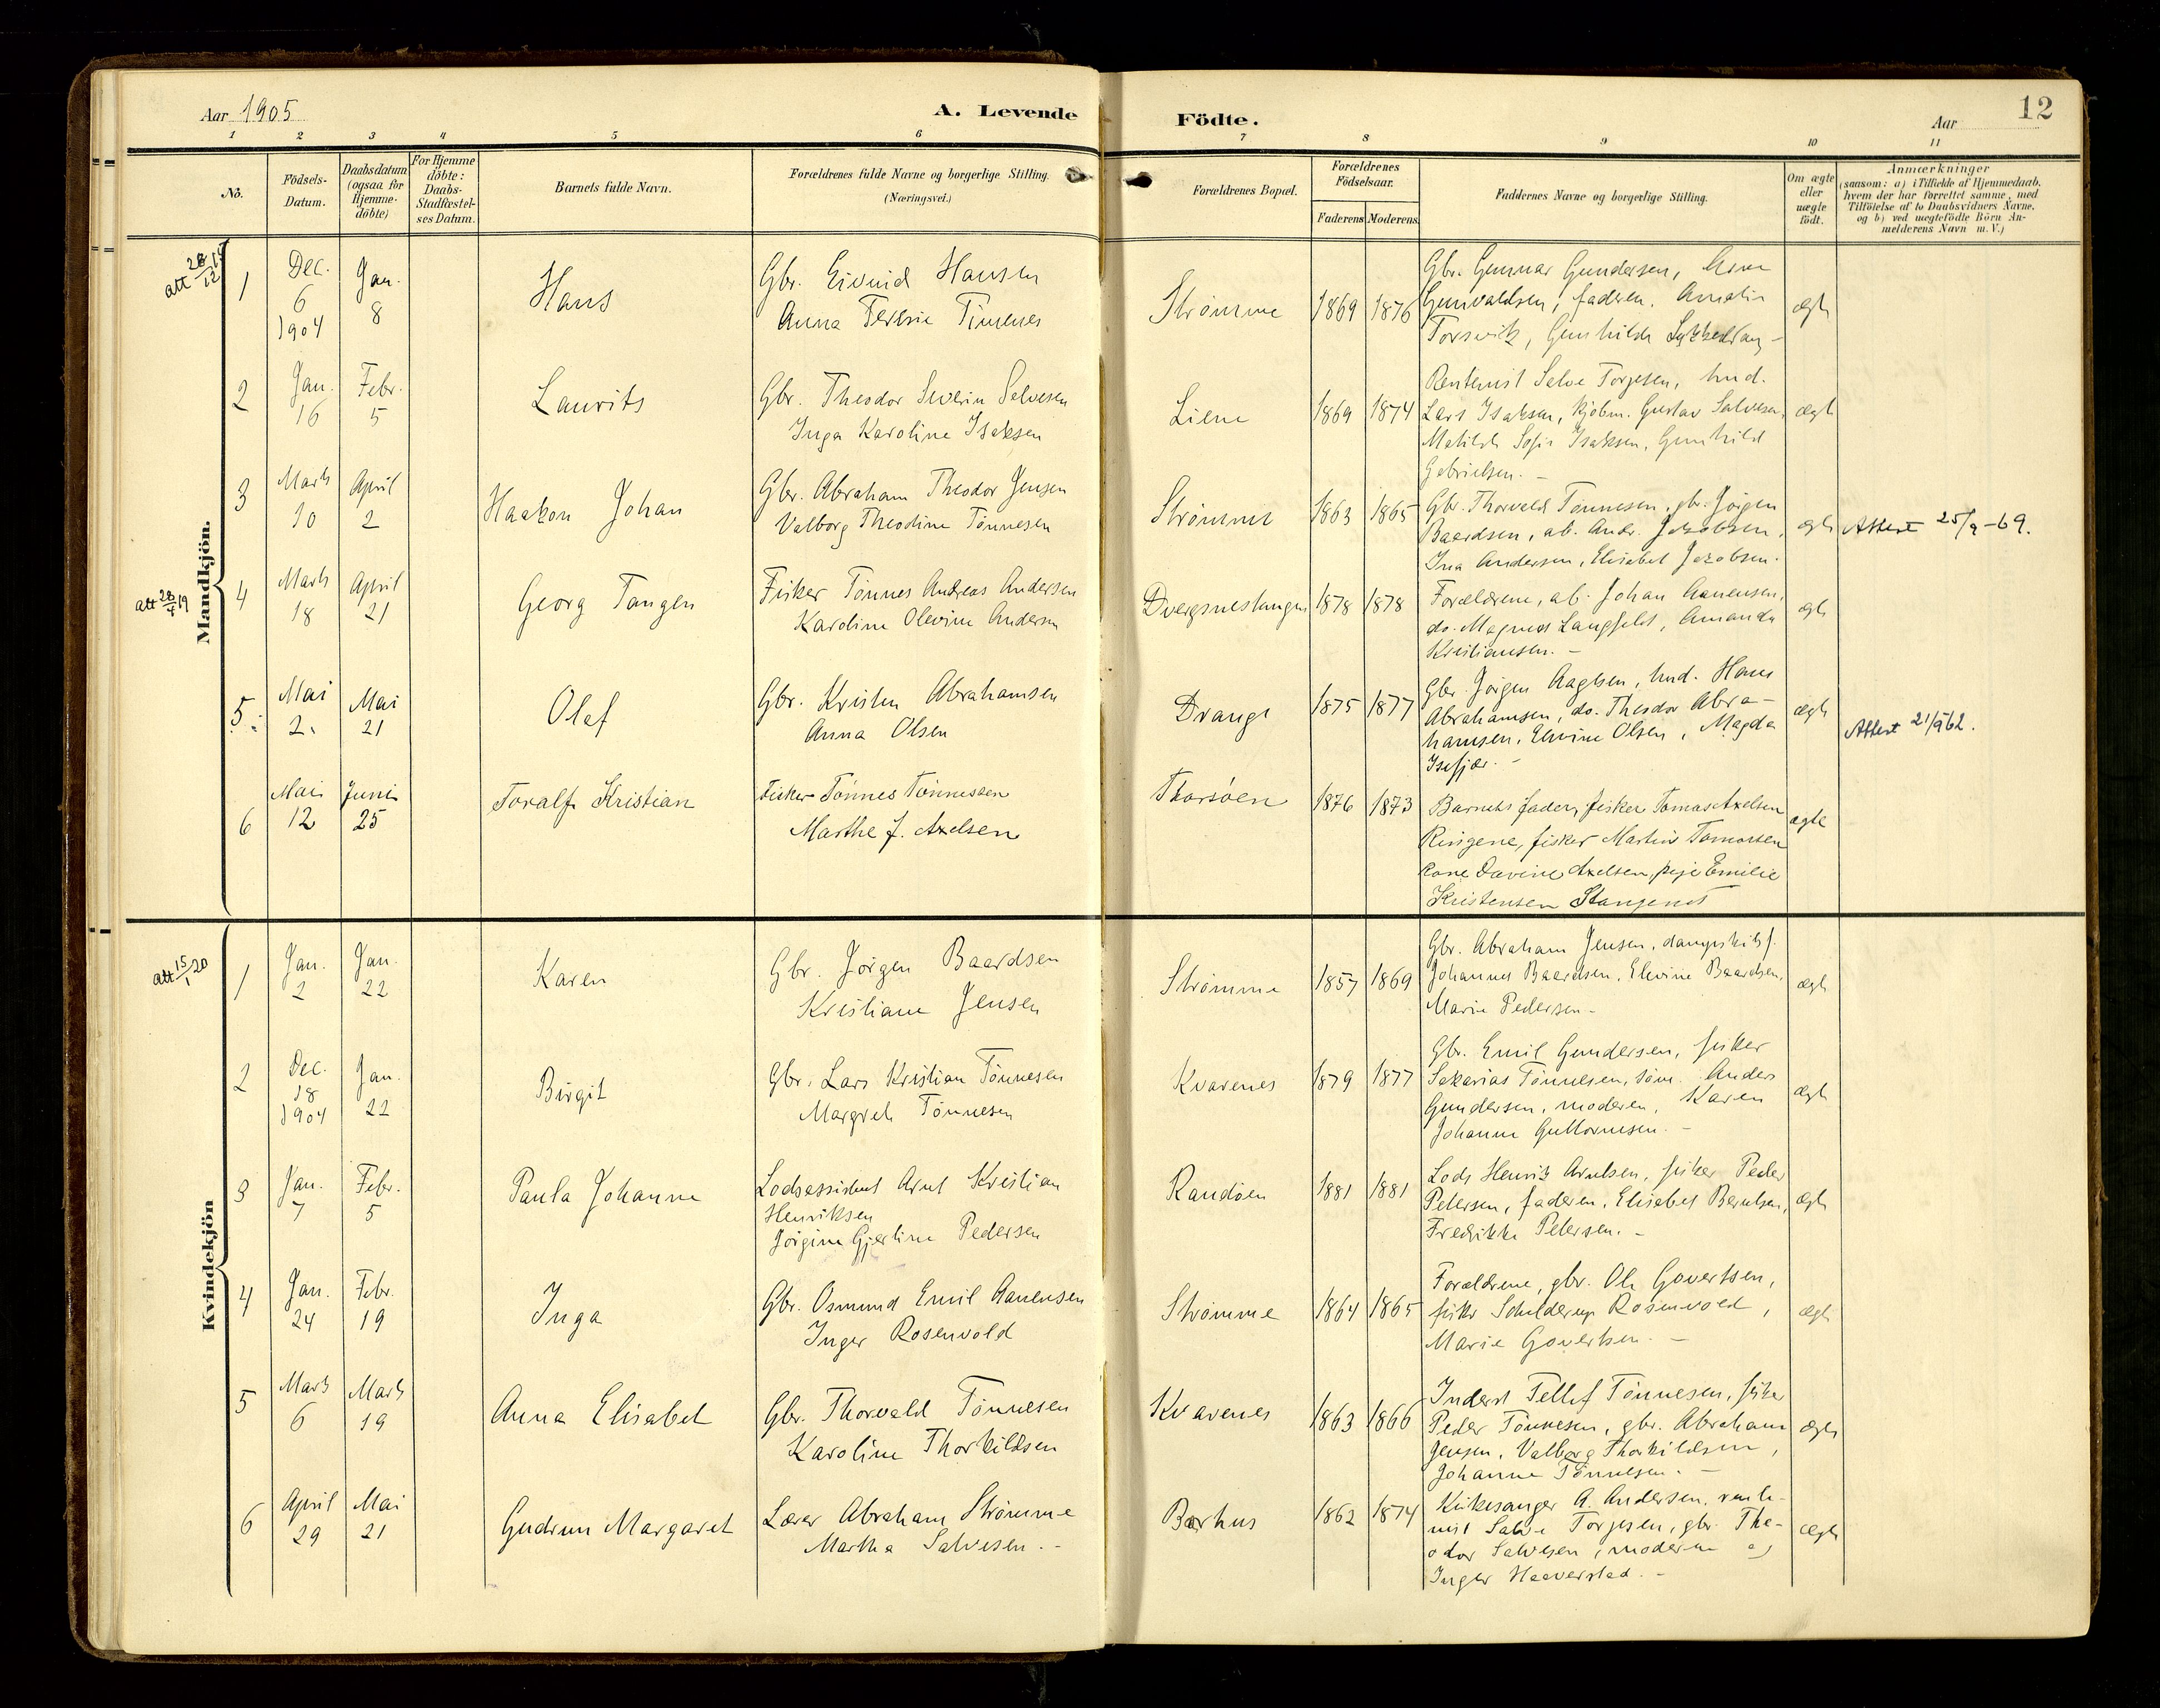 Aar 1905
A. Levende
Födte.
Aar
12
1 2 3 4 5 6 7 8 9 10 11
No.
Födsels-
Datum.
Daabsdatum
(ogsaa for
Hjemme-
döbte)
For Hjemme
döbte:
Daabs-
Stadfæstel-
ses Datum.
Barnets fulde Navn.
Forældrenes fulde Navne og borgerlige Stilling.
(Næringsvei.)
Forældrenes Bopæl.
Forældrenes
Födselsaar.
Faderens Moderens
Faddernes Navne og borgerlige Stilling.
Om ægte
eller
uægte
födt.
Anmærkninger
(saasom: a) i Tilfælde af Hjemmedaab,
hvem der har forrettet samme, med
Tilföielse af to Daabsvidners Navne,
og b) ved uegtefödte Börn An-
melderens Navn m. V.)
Mandkjön.
att 28/12 15
1
Dec.
6
1904
Jan.
8
Hans
Gbr. Eivind Hansen
Anna Teresie Timenes
Strømme
1869 1876
Gbr. Gunnar Gundersen,
Gunvaldsen, faderen, Amalie
Torsvik, Gunhilde
ægte
2
Jan.
16
Febr.
5
Laurits
Gbr. Theodor Severin Selvesen
Inga Karoline Isaksen
Liene
1869 1874
Rentenist Salve Torjesen, snd.
Lars Isaksen, kjøbm. Gustav Salvesen,
Matilde Sofie Isaksen, Gunhild
Gabrielsen. -
ægte
3
Marts
10
April
2
Haakon Johan
Gbr. Abraham Theodor Jensen
Valborg Theodine Tønnesen
Strømme
1863 1865
Gbr. Thorvald Tønnesen, gbr. Jørgen
Baardsen, ab. Andr. Jakobsen,
Ina Andersen, Elisabet Jakobsen.
ægte
Attest 25/9-69.
att 28/4 19
4
Marts
18
April
21
Georg Tangen
Fisker Tønnes Andreas Andersen
Karoline Olevine Andersen
Dvergsnestangen
1878 1878
Forældrene, ab. Johan Aanensen,
do. Magnus Langfeldt, Amanda
Kristiansen. -
ægte
5
Mai
2.
Mai
21
Olaf
Gbr. Kristen Abrahamsen
Anna Olsen
Drange
1875 1877
Gbr. Jørgen Aagesen, snd. Hans
Abrahamsen, do. Theodor Abra-
hamsen, Elevine Olsen, Magda
Isefjær. -
ægte
Attest 21/9-62.
6
Mai
12
Juni
25
Toralf Kristian
Fisker Tønnes Tønnessen
Marthe J. Axelsen
Tharsøen
1876 1873
Barnets fader, fisker Tomas Axelsen
Ringene, fisker Martin Tomassen
kone Davine Axelsen, pige Emilie
Kristensen Stangenes
ægte
Kvindekjön
att 15/1 20
1
Jan.
2
Jan.
22
Karen
Gbr. Jørgen Baardsen
Kristiane Jensen
Strømme
1857 1869
Gbr. Abraham Jensen, dampskibsf.
Johannes Baardsen, Elevine Baardsen,
Marie Pedersen -
ægte
2
Dec.
18
1904
Jan.
22
Birgit
Gbr. Lars Kristian Tønnesen
Margrete Tønnesen
Kvarenes
1879 1877
Gbr. Emil Gundersen, fisker
Sakarias Tønnesen, søm. Anders
Gundersen, moderen, Karen
Johanne Guttormsen. -
ægte
3
Jan.
7
Febr.
5
Paula Johanne
Lodsassistent Arnt Kristian
Henriksen
Jørgine Gjertine Pedersen
Randøen
1881 1881
Lods Henrik Arntsen, fisker Peder
Petersen, faderen, Elisabet Berntsen,
Fredrikke Petersen. -
ægte
4
Jan.
24
Febr.
19
Inga
Gbr. Osmund Emil Aanensen
Inger Rosenvold
Strømme
1864 1865
Forældrene, gbr. Ole Govertsen,
fisker Schelderup Rosenvold,
Marie Govertsen. -
ægte
5
Marts
6
Marts
19
Anna Elisabet
Gbr. Thorvald Tønnesen
Karoline Thorkildsen
Kvarenes
1863 1866
Inderst Tellef Tønnesen, fisker
Peder Tønnesen, gbr. Abraham
Jensen, Valborg Thorkildsen,
Johanne Tønnesen. -
ægte
6
April
29
Mai
21
Gudrun Margaret
Lærer Abraham Strømme
Martha Salvesen. -
Barhus
1862 1874
Kirkesanger A. Andersen, rente-
nist Salve Torjesen, gbr. The-
odor Salvesen, moderen og
Inger Haaverstad. -
ægte